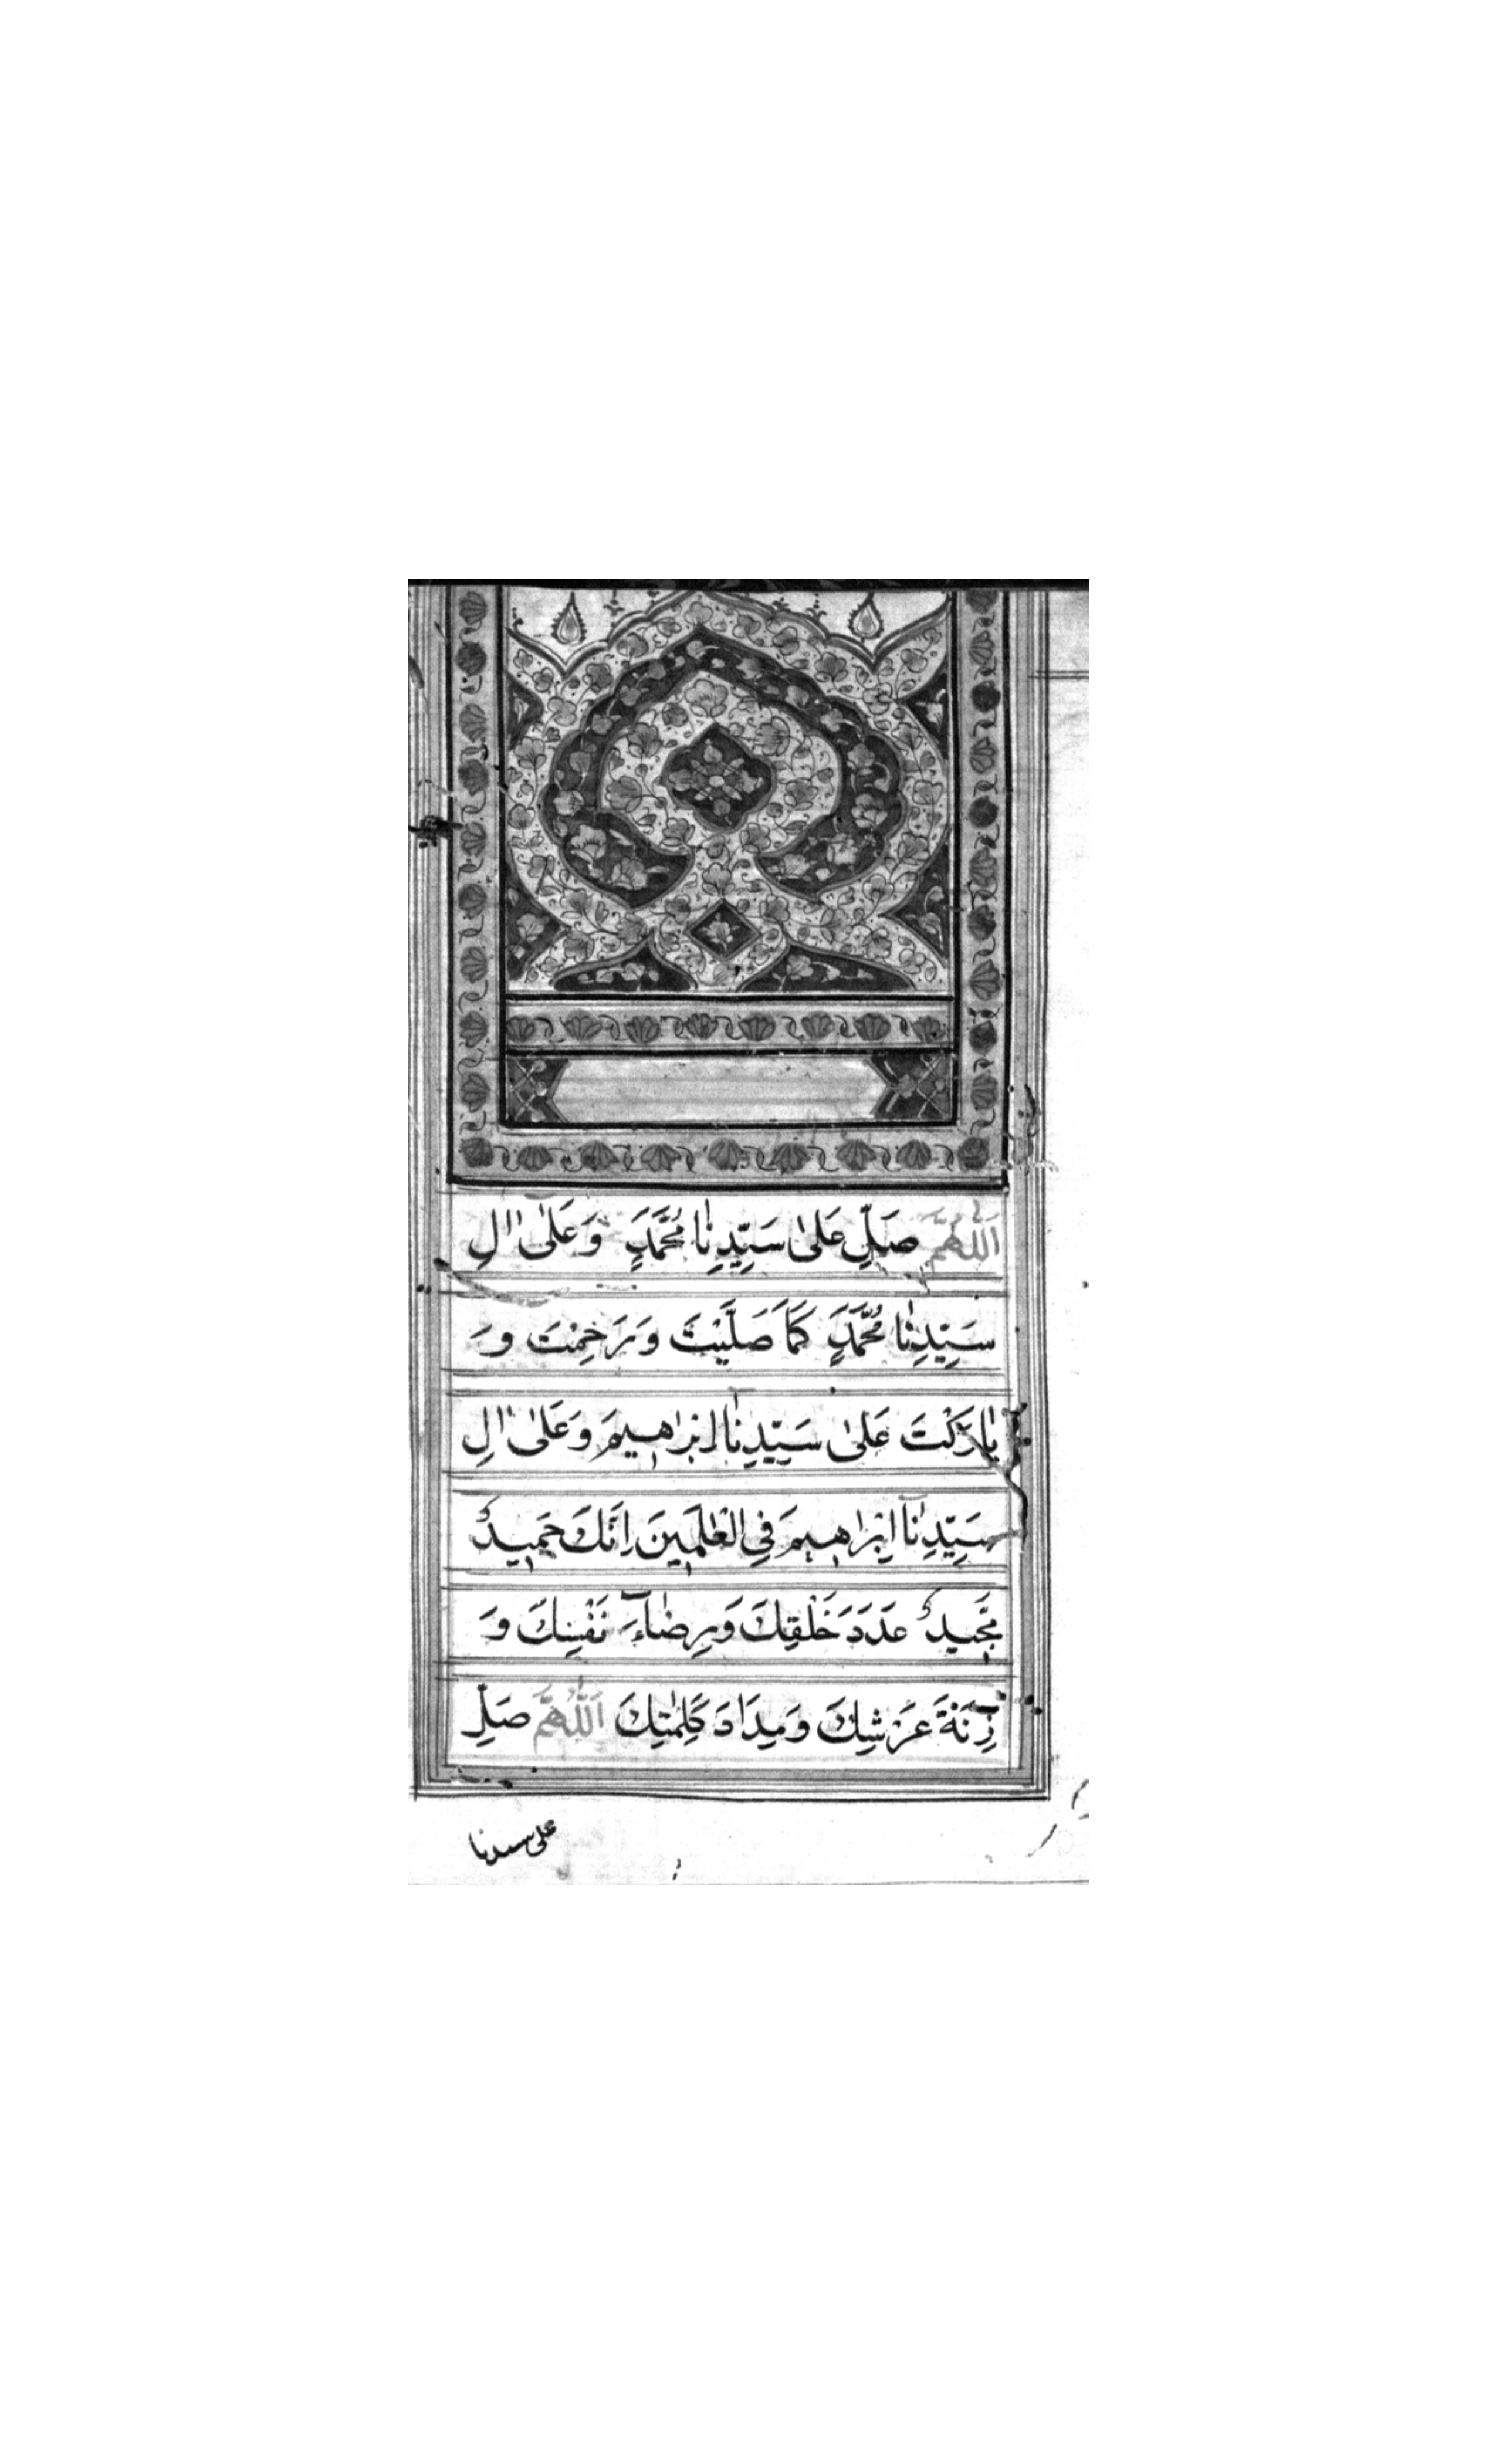 اَللّٰهُمَّ صَلِّ عَلىٰ سَيِّدِنَا مُحَمَّدٍ وَعَلىٰٓ اٰلِ
سَيِّدِنَا مُحَمَّدٍ كَمَا صَلَّيْتَ وَرَحِمْتَ وَ
بَارَكْتَ عَلىٰ سَيِّدِنَآ اِبْرَاهِيمَ وَعَلىٰٓ اٰلِ
سَيِّدِنَآ اِبْرَاهِيمَ فِي الْعٰلَمِينَ اِنَّكَ حَمِيدٌ
مَجِيدٌ عَدَدَ خَلْقِكَ وَرِضَآءَ نَفْسِكَ وَ
زِنَةَ عَرْشِكَ وَمِدَادَ كَلِمٰتِكَ اَللّٰهُمَّ صَلِّ
على سيدنا